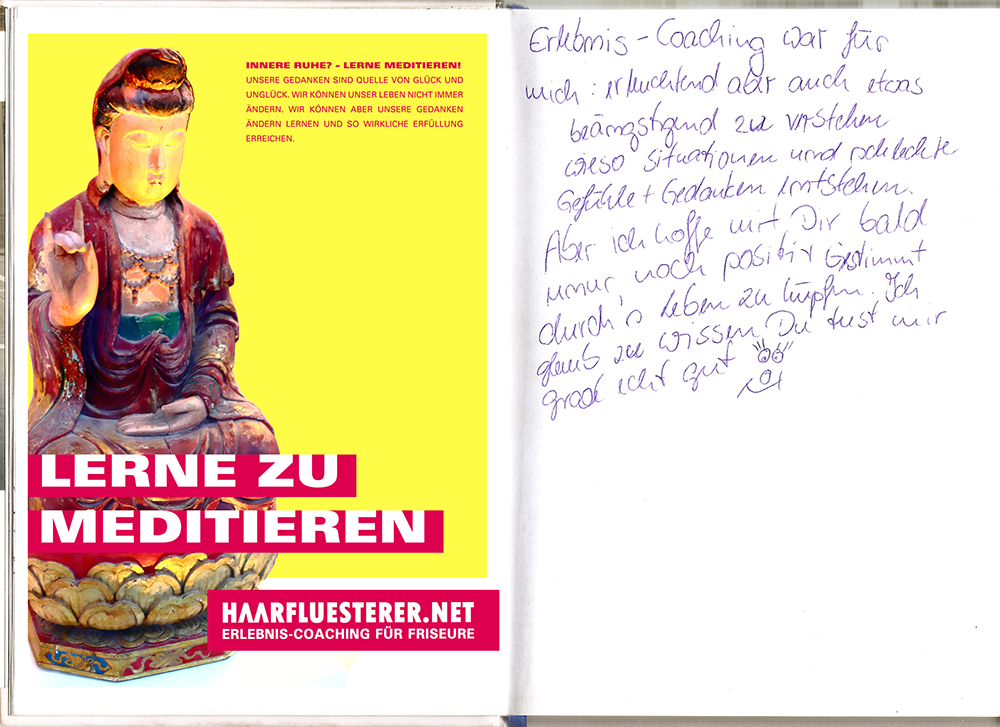 INNERE RUHE? - LERNE MEDITIEREN!
UNSERE GEDANKEN SIND QUELLE VON GLÜCK UND
UNGLÜCK. WIR KÖNNEN UNSER LEBEN NICHT IMMER
ÄNDERN. WIR KÖNNEN ABER UNSERE GEDANKEN
ÄNDERN LERNEN UND SO WIRKLICHE ERFÜLLUNG
ERREICHEN.
LERNE ZU
MEDITIEREN
HAARFLUESTERER.NET
ERLEBNIS-COACHING FÜR FRISEURE
Erlebnis-Coaching war für
mich: erleuchtend aber auch etwas
beängstigend zu verstehen
wieso Situationen und schlechte
Gefühle + Gedanken entstehen.
Aber ich hoffe mit Dir bald
nur noch positiv gestimmt
durch's Leben zu hüpfen. Ich
glaub zu wissen Du tust mir
grad echt gut